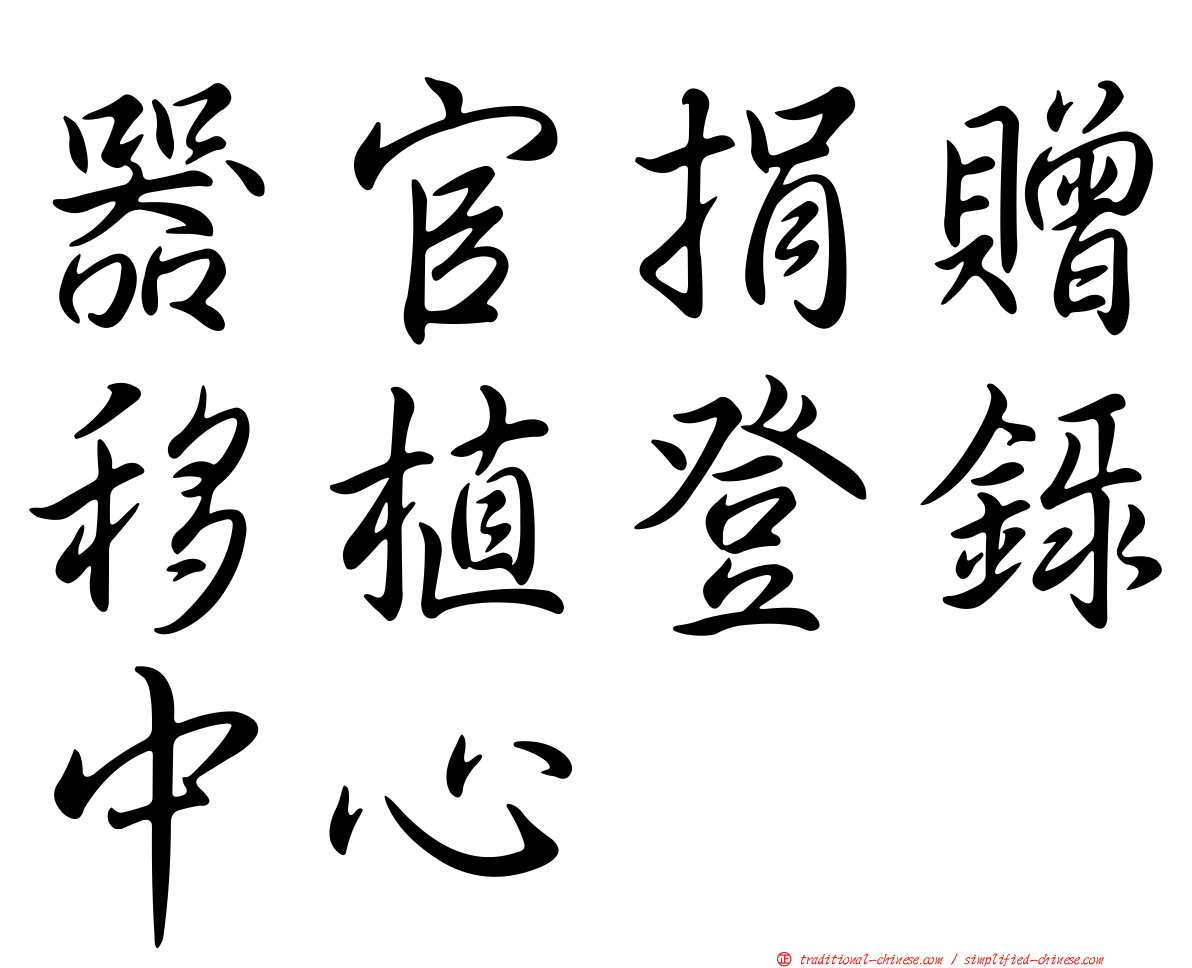 器官捐贈
移植登錄
中心
正 traditional-chinese.com / simplified-chinese.com